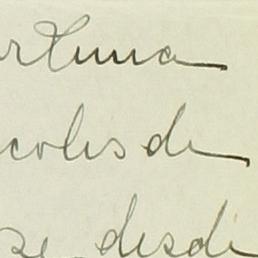 rtuna
colis de
se desde